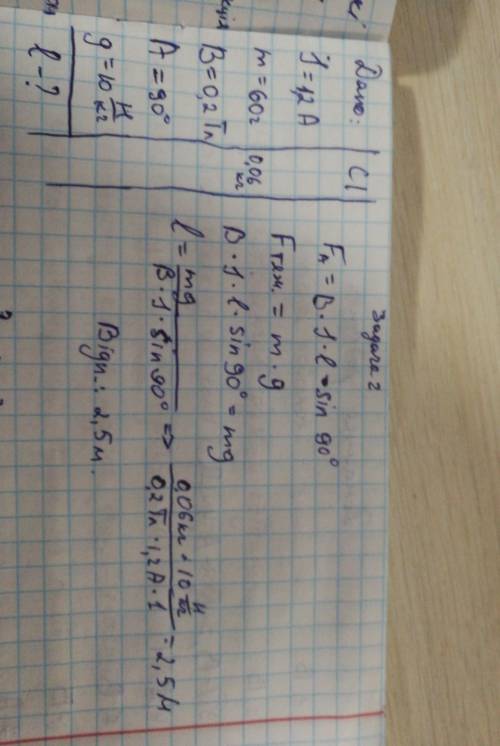 Задача 2
Дано:
СІ
I = 1,2 A
m = 60г
0,06 кг
B = 0,2 Тл
A = 90°
g = 10 Н/кг
l - ?
Fл = B · I · l · sin 90°
Fтяж. = m · g
B · I · l · sin 90° = mg
l = mg / B · I · sin 90° => 0,06кг · 10 Н/кг / 0,2 Тл · 1,2 A · 1 = 2,5 м
Відп.: 2,5 м.